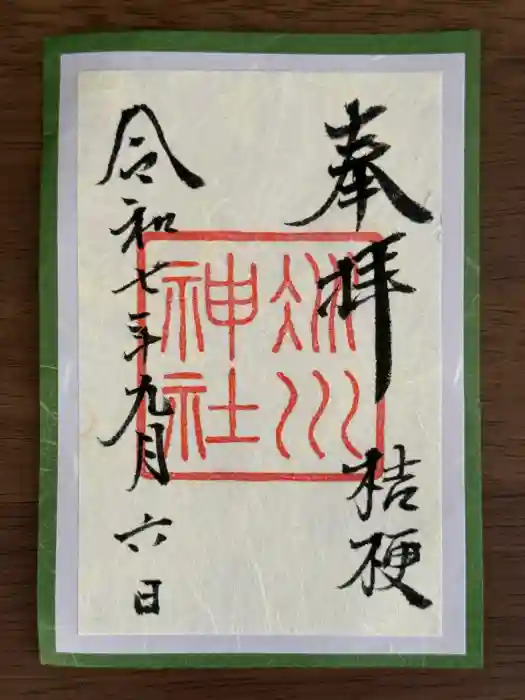 奉拝
桔梗
冰川
神社
令和七年九月六日